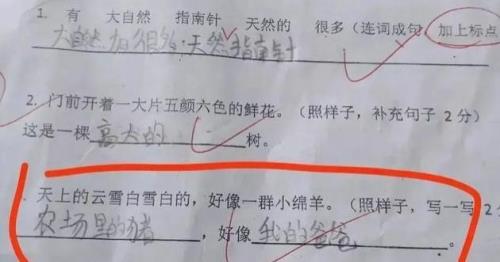 1. 有 大自然 指南针 天然的 很多(连词成句,加上标点
大自然有很多天然指南针
2. 门前开着一大片五颜六色的鲜花。(照样子,补充句子 2 分)
这是一棵高大的树。
天上的云雪白雪白的,好像一群小绵羊。(照样子,写一写 2
农场里的猪,好像我的爸爸。